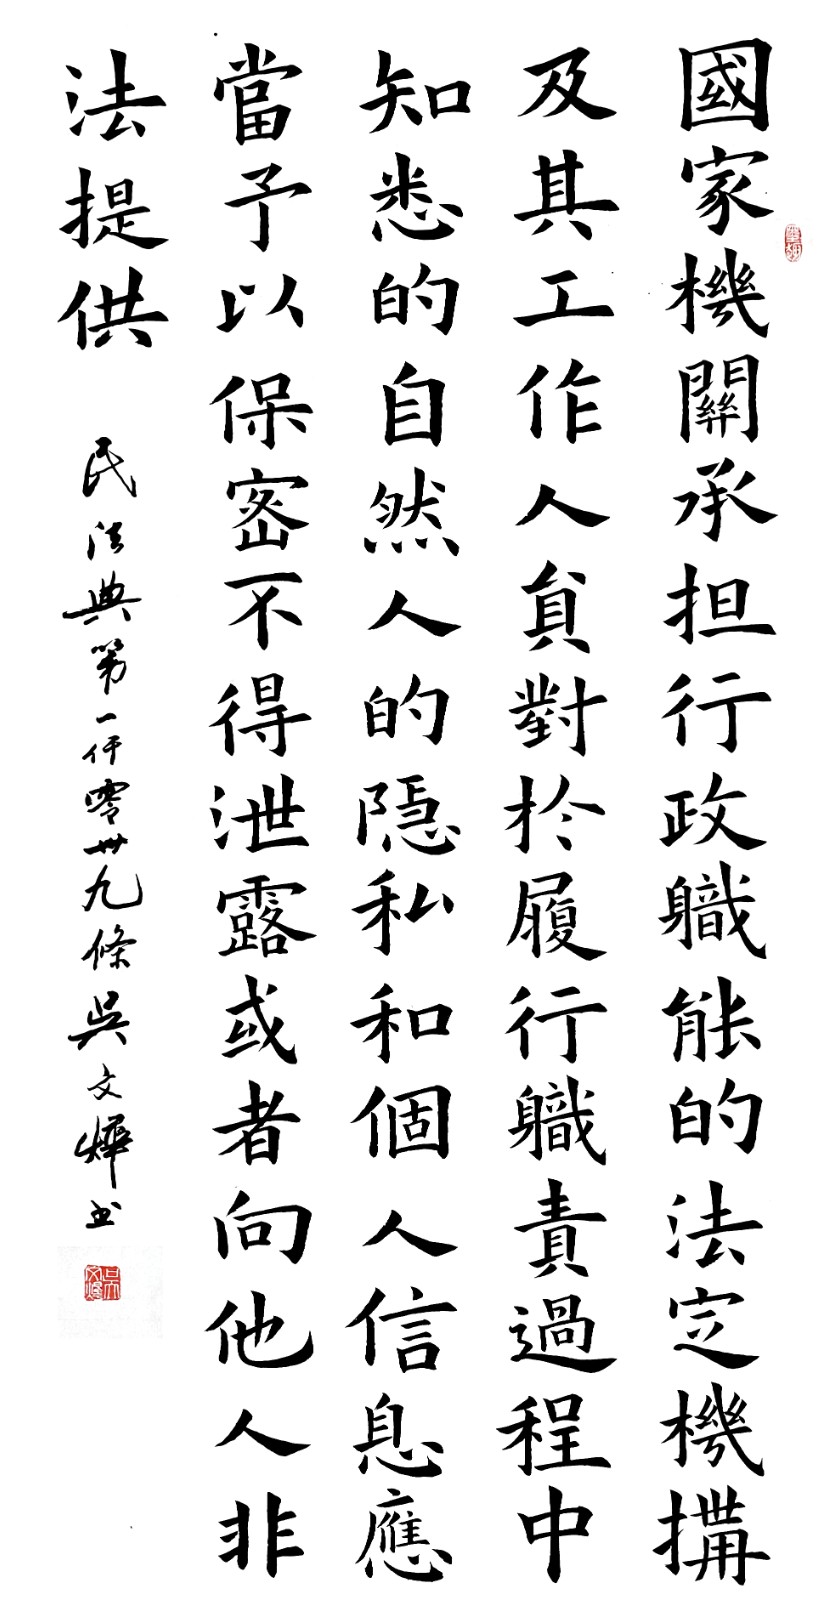 國家機關承担行政軄能的法定機搆
及其工作人貟對扵履行軄責過程中
知悉的自然人的隐私和個人信息應
當予以保密不得泄露或者向他人非
法提供
民法典第一仟零卅九條吳文燁书